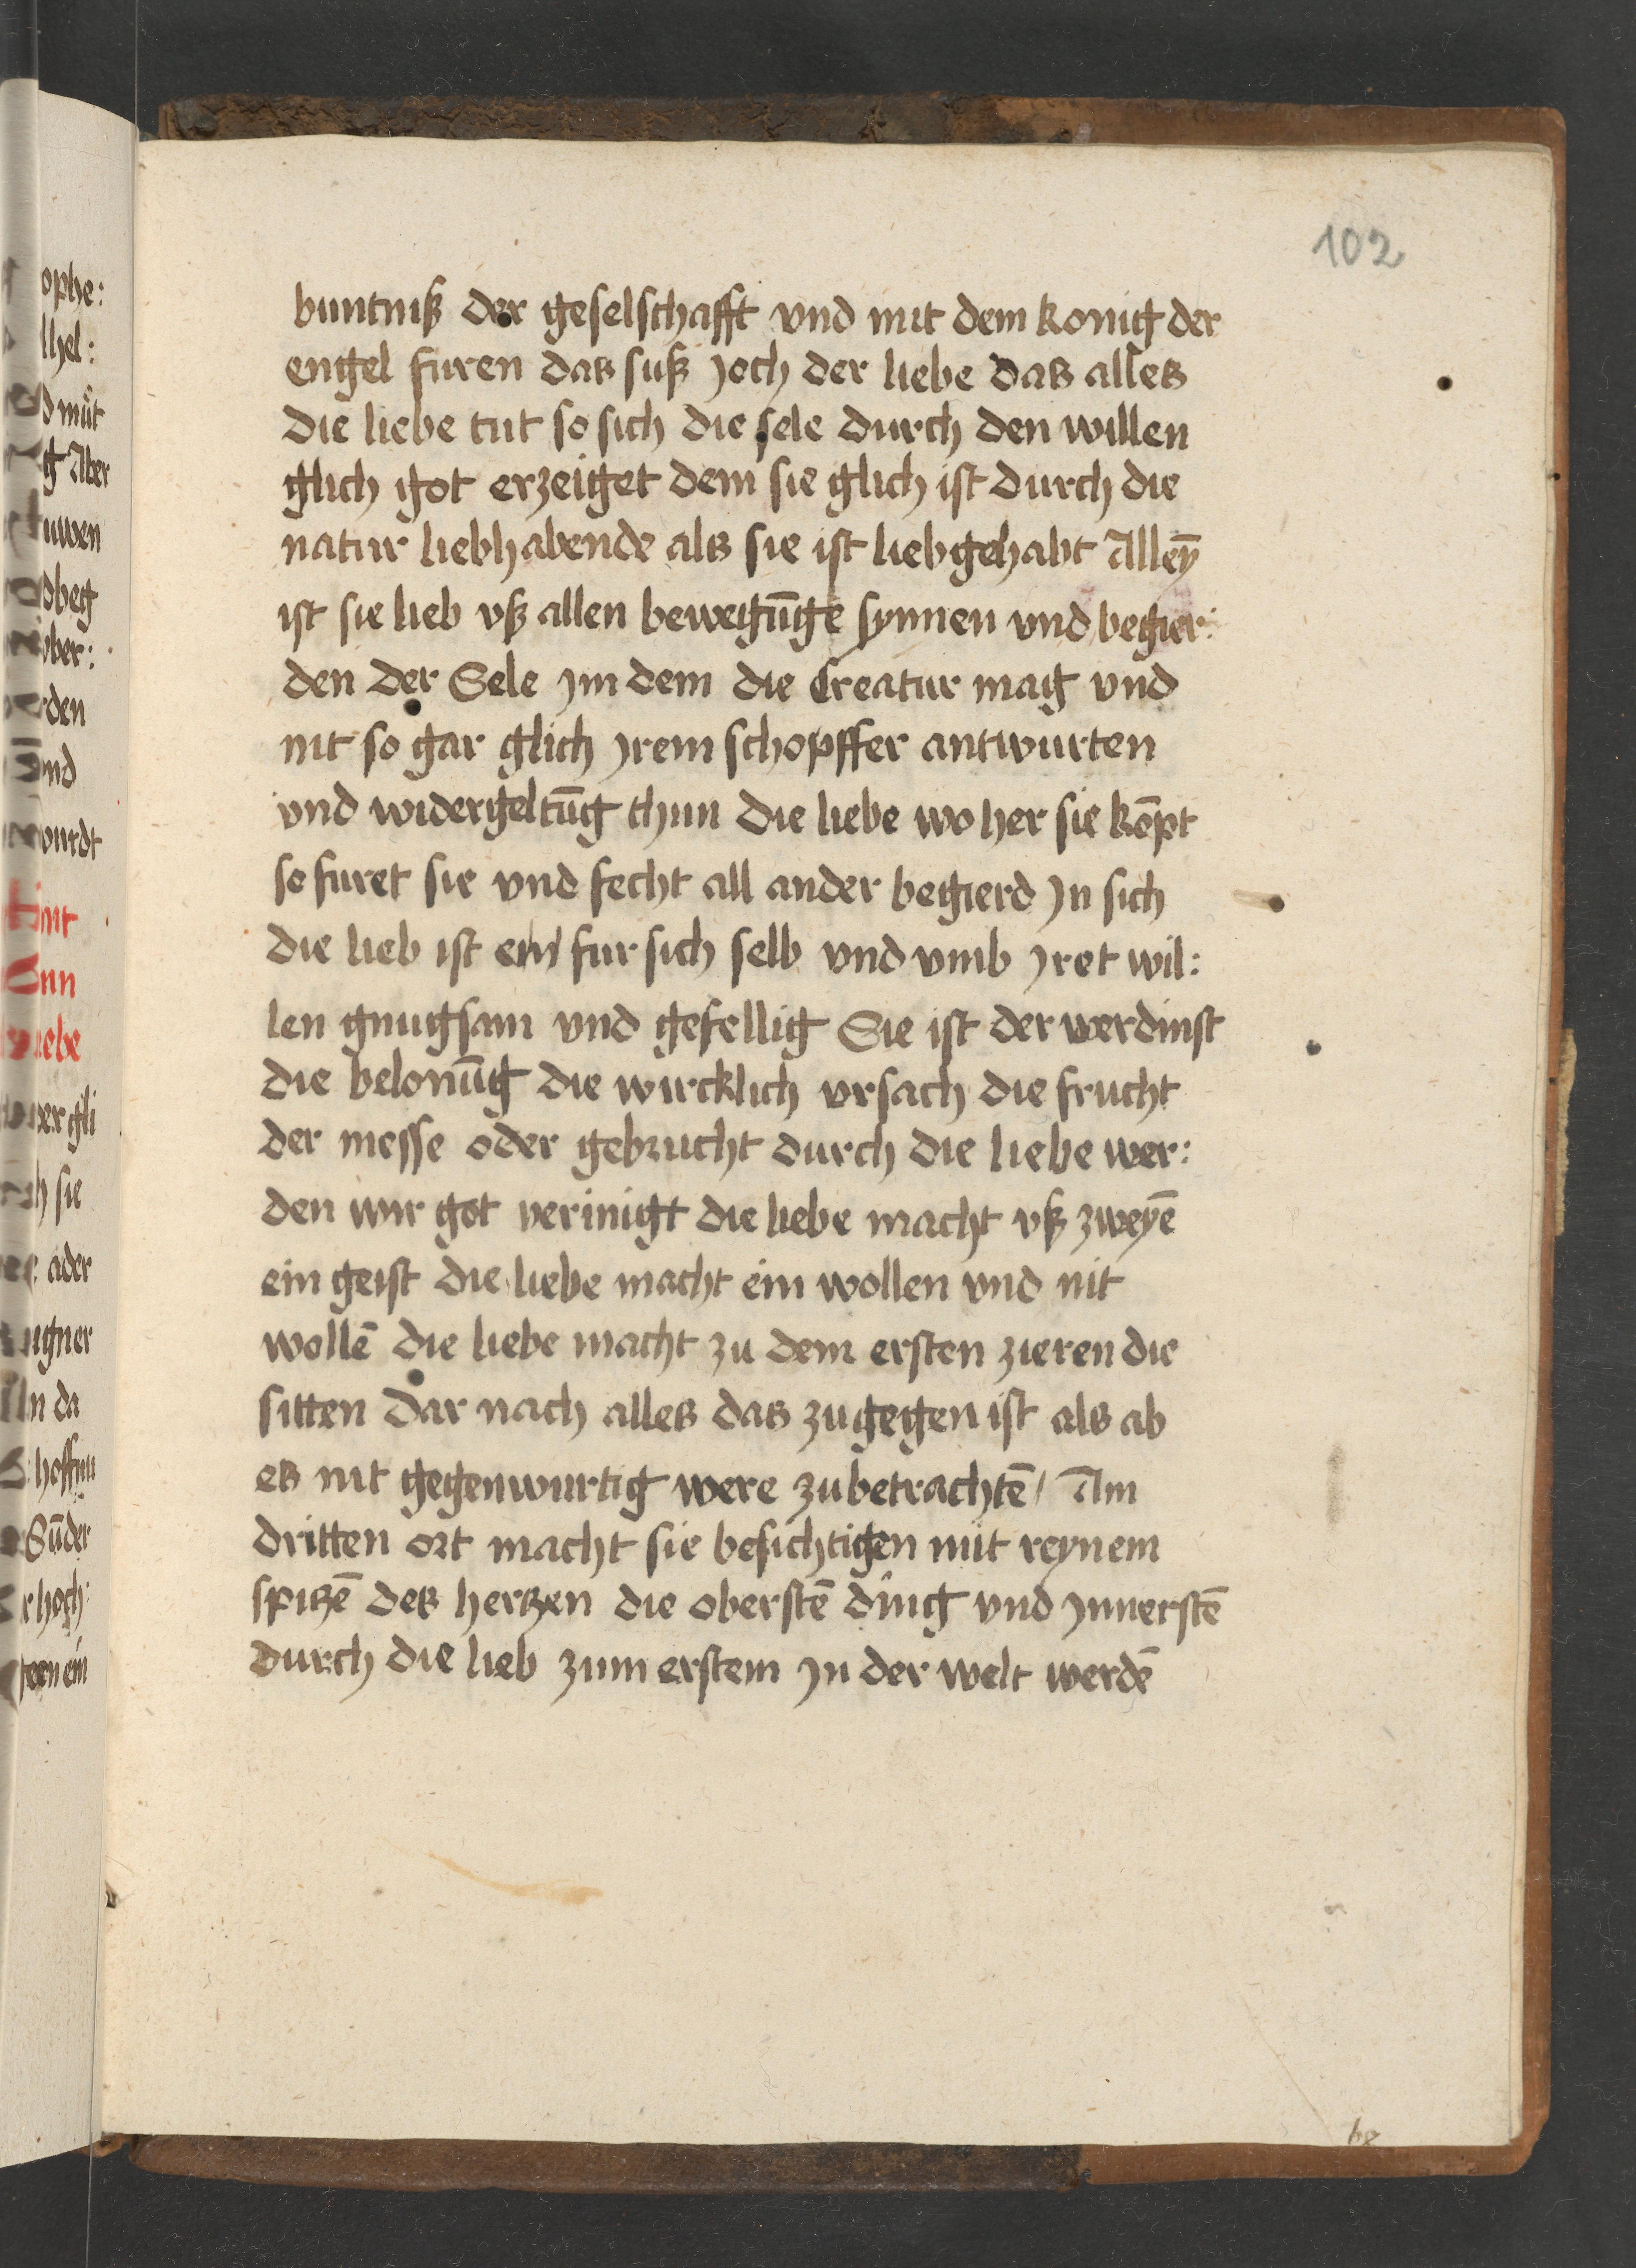 102
buntniß der geselschafft vnd mit dem konig der
engel furen das suß joch der liebe das alles
die liebe tut so sich die sele durch den willen
glich got erzeiget dem sie glich ist durch die
natur liebhabende als sie ist liebgehabt Alleȳ
ist sie lieb vß allen bewegūge synnen vnd begier:
den der Sele jm dem die Creatur mag vnd
nit so gar glich jrem schopffer antwurten
vnd widergeltūg thun die liebe wo her sie kōpt
so furet sie vnd fecht all ander begierd jn sich
die lieb ist ein fur sich selb vnd vmb jret wil:
len gnugsam vnd gefellig Sie ist der verdinst
die belonūg die wircklich vrsach die frucht
der messe oder gebrucht durch die liebe wer:
den wir got verinigt die liebe macht vß zweyē
ein geist die liebe macht ein wollen vnd nit
wollē die liebe macht zu dem ersten zieren die
sitten dar nach alles das zugegen ist als ab
es nit gegenwurtig were zubetrachtē / Am
dritten ort macht sie besichtigen mit reynem
spitzē des hertzen die oberstē ding vnd jnnerstē
durch die lieb zum erstem jn der welt werdē
be